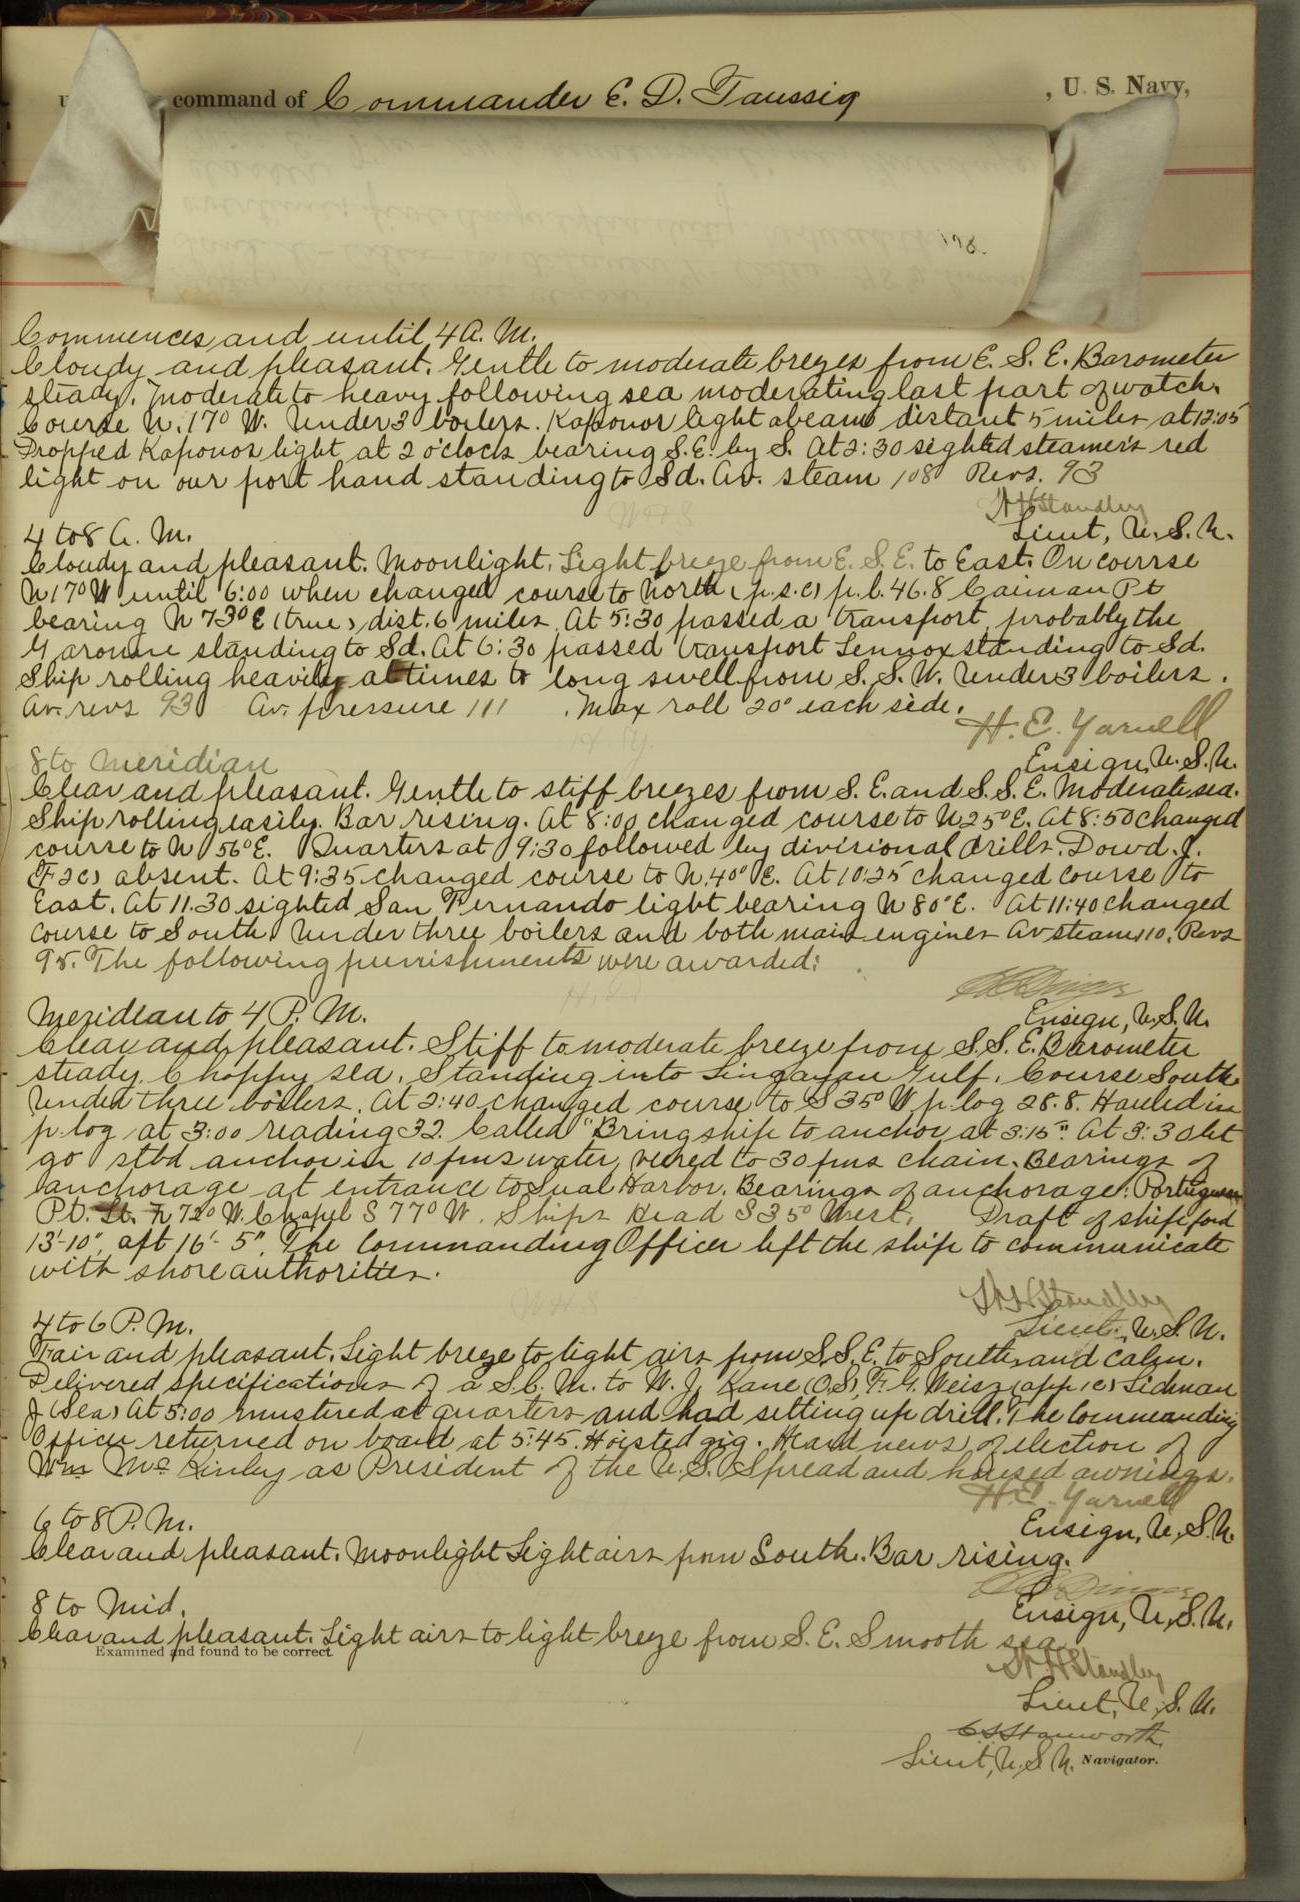 command of Commander E. D. Taussig , U. S. Navy,
Commences and until 4 A. M.
Cloudy and pleasant. Gentle to moderate breezes from E. S. E. Barometer
steady. Moderate to heavy following sea moderating last part of watch.
Course N. 17° W. Under 3 boilers. Kaponor light abeam distant 5 miles at 12:05
Dropped Kaponor light at 2 o'clock bearing S. E. by S. At 2:30 sighted steamer's red
light on our port hand standing to Sd. Av. steam 108 Revs. 93
W H Standley
Lieut, U. S. N.
4 to 8 A. M.
Cloudy and pleasant. Moonlight. Light breeze from E. S. E. to East. On course
N 17° W until 6:00 when changed course to North (p.s.c) p.l. 46.8 Caiman Pt
bearing N 73° E (true), dist. 6 miles. At 5:30 passed a transport, probably the
Garonne standing to Sd. At 6:30 passed transport Lennox standing to Sd.
Ship rolling heavily at times to long swell from S. S. W. Under 3 boilers.
Av. revs 93 Av. pressure 111 . Max roll 20° each side.
H. E. Yarnell
Ensign, U. S. N.
8 to Meridian
Clear and pleasant. Gentle to stiff breezes from S. E. and S. S. E. Moderate sea.
Ship rolling easily. Bar rising. At 8:00 changed course to N 25° E. At 8:50 changed
course to N 56° E. Quarters at 9:30 followed by divisional drills. Dowd. J.
(F 2c) absent. At 9:35 changed course to N. 40° E. At 10:25 changed course to
East. At 11.30 sighted San Fernando light bearing N 80° E. At 11:40 changed
course to South. Under three boilers and both main engines Av steam 110. Revs
95. The following punishments were awarded:
Ensign, U. S. N.
Meridian to 4 P. M.
Clear and pleasant. Stiff to moderate breeze from S. S. E. Barometer
steady. Choppy sea. Standing into Lingayan Gulf. Course South
Under three boilers. At 2:40 changed course to S 35° W p. log 28.8. Hauled in
p. log at 3:00 reading 32. Called "Bring ship to anchor at 3:15." At 3:30 let
go stbd anchor in 10 fms water, veered to 30 fms chain. Bearings of
anchorage at entrance to Sual Harbor. Bearings of anchorage: Portuguese
Pt. Lt. N 72° W. Chapel S 77° W. Ships Head S 35° West. Draft of ship ford
13'-10", aft 16'-5". The Commanding Officer left the ship to communicate
with shore authorities.
W H Standley
Lieut., U. S. N.
4 to 6 P. M.
Fair and pleasant. Light breeze to light airs from S. S. E. to South and calm.
Delivered specifications of a S. C. M. to W. J. Kane (O.S.) F. G. Weisz (app 1c) Sidman
J (Sea) At 5:00 mustered at quarters and had setting up drill. The Commanding
Officer returned on board at 5:45. Hoisted gig. Heard news of election of
Wm McKinley as President of the U. S. Spread and housed awnings.
H. E. Yarnell
Ensign, U. S. N.
6 to 8 P. M.
Clear and pleasant. Moonlight Light airs from South. Bar rising.
Ensign, U. S. N.
8 to Mid.
Clear and pleasant. Light airs to light breeze from S. E. Smooth sea
Examined and found to be correct.
W H Standley
Lieut, U. S. N.
C S Stanworth
Lieut, U. S. N. Navigator.